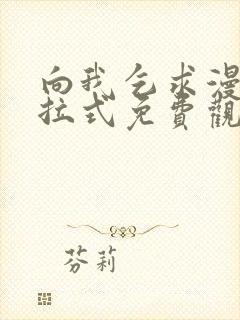 向我乞求漫
拉式免費觀
芬莉